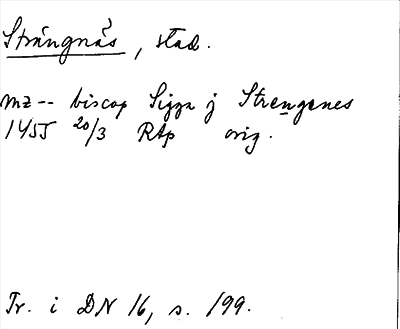 Strängnäs, stad.
mz -- biscop Sigga j Strengenes
1455 20/3 RAp orig.
Tr. i DN 16, s. 199.